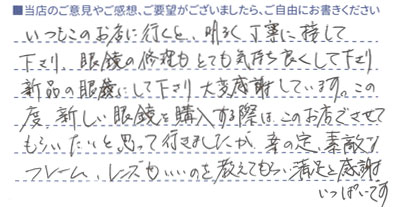 ■当店のご意見やご感想、ご要望がございましたら、ご自由にお書きください
いつもこのお店に行くと、明るく丁寧に接して
下さり、眼鏡の修理もとても気持ち良くして下さり
新品の眼鏡にして下さり大変感謝しています。この
度、新しい眼鏡を購入する際は、このお店でさせて
もらいたいと思って行きましたが、案の定、素敵な
フレーム、レンズもいいのを教えてもらい満足と感謝
いっぱいです